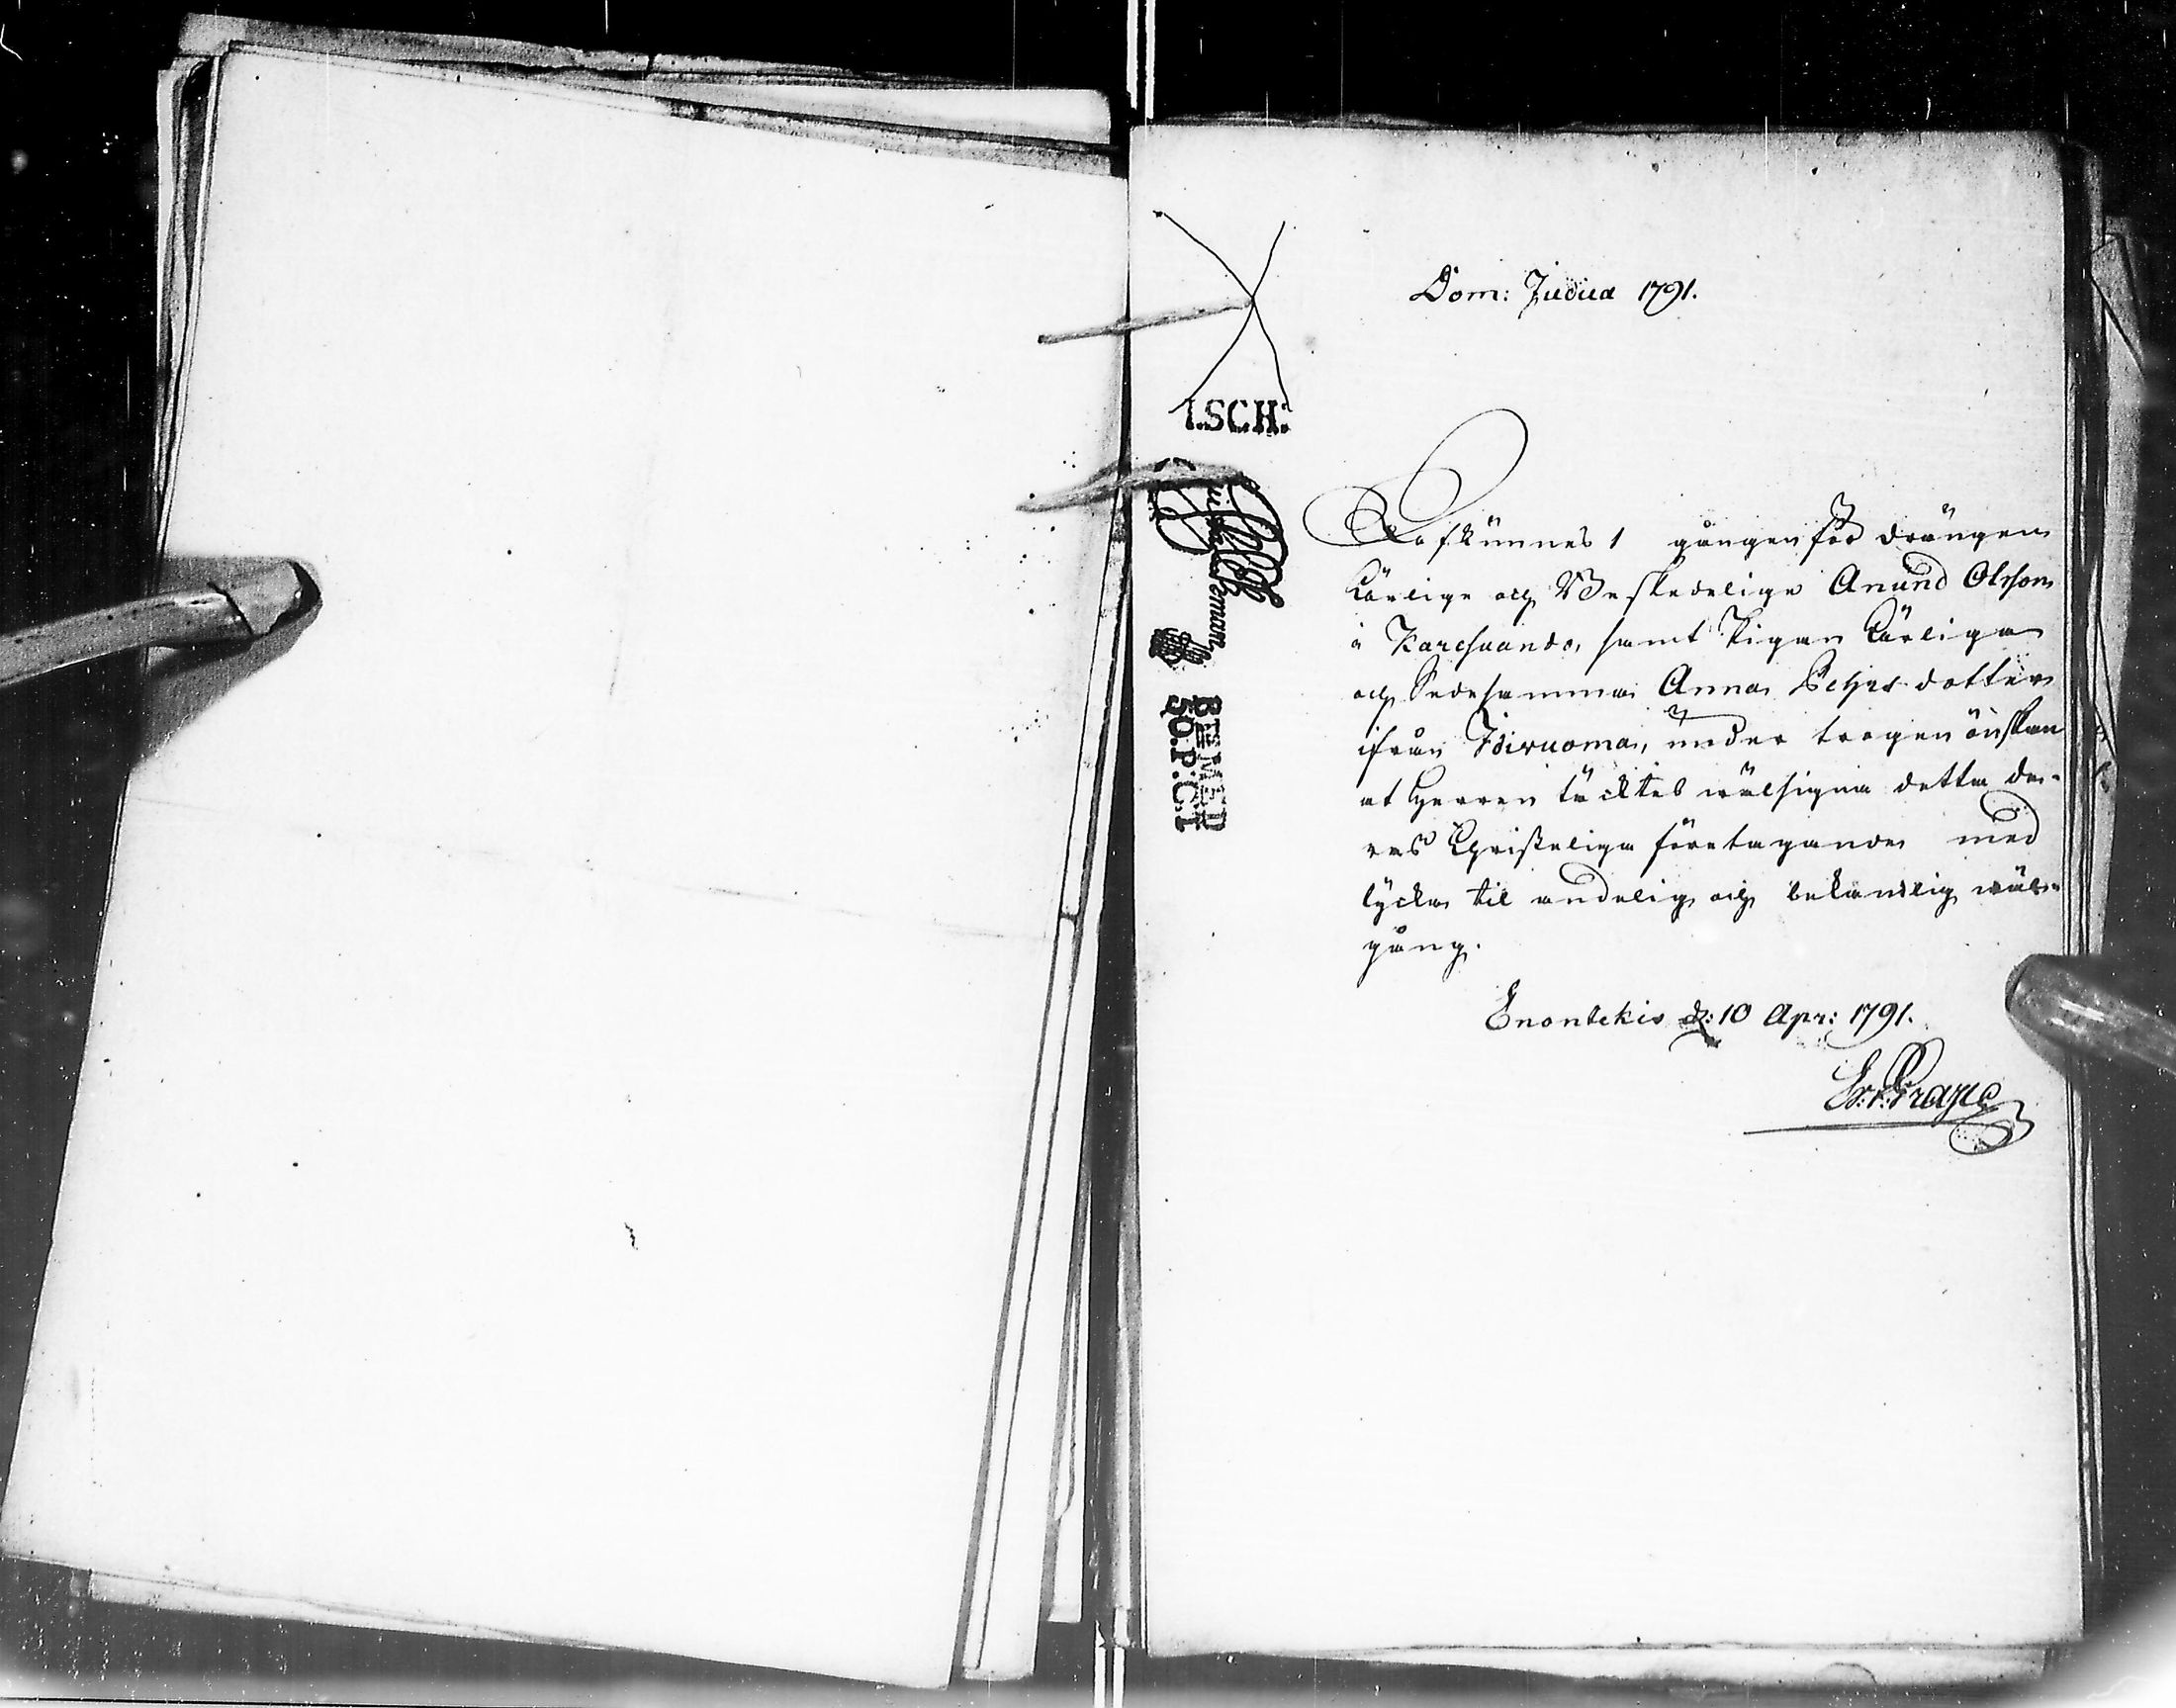 Dom: Judica 1791.
1.SCH:
Afkünnes 1 gången för drängen
Ärlige och Beskedelige Anund Olsson
i Karesuando, samt Pigan Ärliga
och Sedesamma Anna Pehrs dotter
ifrån Idivuoma, under trogen önskan
at Herren täcktes välsigna detta de-
ras Christeliga företagande med
lycka til andelig och lekamlig väl-
gång.
Enontekis d: 10 Apr: 1791.
50.P:C:T